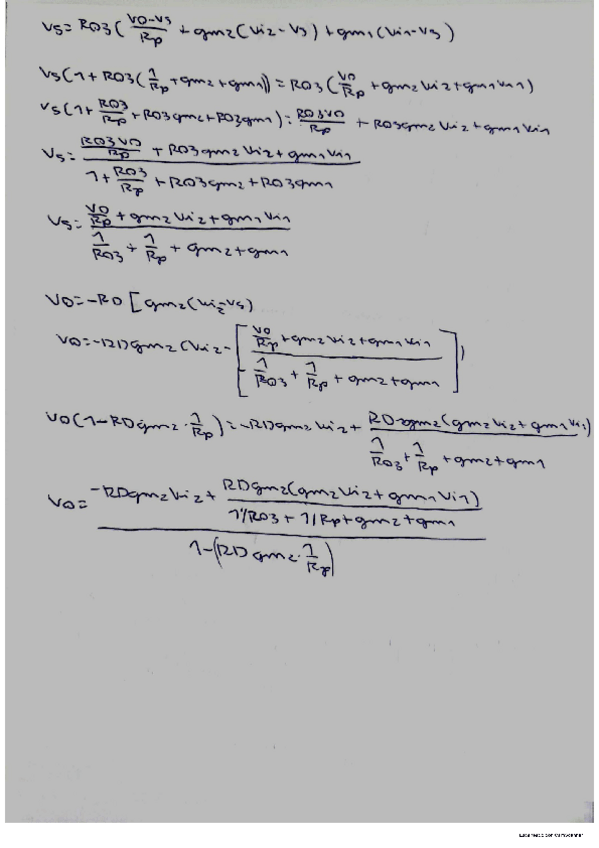 VS = RO3 ( (VO-VS)/Rp + gm2(Vi2 - VS) + gm1(Vi1-VS) )
VS(1 + RO3(1/Rp + gm2 + gm1)) = RO3 ( VO/Rp + gm2 Vi2 + gm1 Vi1)
VS(1 + RO3/Rp + RO3gm2 + RO3gm1) = RO3VO/Rp + RO3gm2 Vi2 + gm1 Vi1
VS = (RO3VO/Rp + RO3gm2 Vi2 + gm1 Vi1) / (1 + RO3/Rp + RO3gm2 + RO3gm1)
VS = (VO/Rp + gm2 Vi2 + gm1 Vi1) / (1/RO3 + 1/Rp + gm2 + gm1)
VO = -RD [ gm2(Vi2-VS)
VO = -RDgm2 (Vi2 - [ (VO/Rp + gm2 Vi2 + gm1 Vi1) / (1/RO3 + 1/Rp + gm2 + gm1) ] )
VO(1 - RDgm2 · 1/Rp) = -RDgm2 Vi2 + RDgm2(gm2 Vi2 + gm1 Vi1) / (1/RO3 + 1/Rp + gm2 + gm1)
VO = (-RDgm2 Vi2 + RDgm2(gm2 Vi2 + gm1 Vi1) / (1/RO3 + 1/Rp + gm2 + gm1)) / (1 - (RDgm2 · 1/Rp))